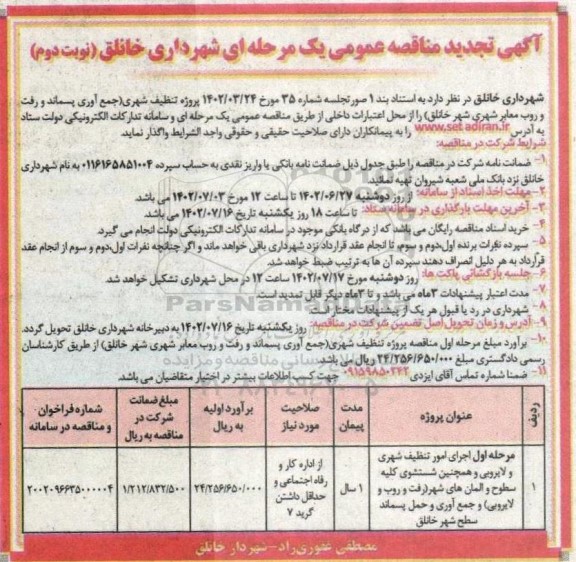 آگهی تجدید مناقصه عمومی یک مرحله ای شهرداری خانلق (نوبت دوم)
شهرداری خانلق در نظر دارد به استناد بند ۱ صورتجلسه شماره ۳۵ مورخ ۱۴۰۲/۰۳/۲۴ پروژه تنظیف شهری(جمع آوری پسماند و رفت
و روب معابر شهری شهر خانلق) را از محل اعتبارات داخلی از طریق مناقصه عمومی یک مرحله ای و سامانه تدارکات الکترونیکی دولت ستاد
به آدرس www.setadiran.ir را به پیمانکاران دارای صلاحیت حقیقی و حقوقی واجد الشرایط واگذار نماید.
شرایط شرکت در مناقصه:
۱- ضمانت نامه شرکت در مناقصه را طبق جدول ذیل ضمانت نامه بانکی یا واریز نقدی به حساب سپرده ۰۱۱۶۱۶۵۸۵۱۰۰۴ به نام شهرداری
خانلق نزد بانک ملی شعبه شیروان تهیه نمائید.
۲- مهلت اخذ اسناد از سامانه: از روز دوشنبه ۱۴۰۲/۰۶/۲۷ تا ساعت ۱۲ مورخ ۱۴۰۲/۰۷/۰۳ می باشد.
۳- آخرین مهلت بارگذاری در سامانه ستاد: تا ساعت ۱۸ روز یکشنبه تاریخ ۱۴۰۲/۰۷/۱۶ می باشد.
۴- خرید اسناد مناقصه رایگان می باشد که از درگاه بانکی موجود در سامانه تدارکات الکترونیکی دولت انجام می گیرد.
۵- سپرده نفرات برنده اول،دوم و سوم، تا انجام عقد قرارداد نزد شهرداری باقی خواهد ماند و اگر چنانچه نفرات اول،دوم و سوم از انجام عقد
قرارداد به هر دلیل انصراف دهند سپرده آن ها به ترتیب ضبط خواهد شد.
۶- جلسه بازگشائی پاکت ها: روز دوشنبه مورخ ۱۴۰۲/۰۷/۱۷ ساعت ۱۲ در محل شهرداری تشکیل خواهد شد.
۷- مدت اعتبار پیشنهادات ۳ماه می باشد و تا ۳ماه دیگر قابل تمدید است.
۸- شهرداری در رد یا قبول هر یک از پیشنهادات مختار است.
۹- آدرس و زمان تحویل اصل تضمین شرکت در مناقصه: روز یکشنبه تاریخ ۱۴۰۲/۰۷/۱۶ به دبیرخانه شهرداری خانلق تحویل گردد.
۱۰- برآورد مبلغ مرحله اول مناقصه پروژه تنظیف شهری(جمع آوری پسماند و رفت و روب معابر شهری شهر خانلق) از طریق کارشناسان
رسمی دادگستری مبلغ ۲۴/۲۵۶/۶۵۰/۰۰۰ ریال می باشد.
۱۱- ضمنا شماره تماس آقای ایزدی ۰۹۱۵۹۸۵۰۲۴۲ جهت کسب اطلاعات بیشتر در اختیار متقاضیان می باشد.
ردیف عنوان پروژه مدت پیمان صلاحیت مورد نیاز برآورد اولیه به ریال مبلغ ضمانت شرکت در مناقصه به ریال شماره فراخوان و مناقصه در سامانه
۱ مرحله اول اجرای امور تنظیف شهری و لایروبی و همچنین شستشوی کلیه سطوح و المان های شهر(رفت و روب و لایروبی) و جمع آوری و حمل پسماند سطح شهر خانلق ۱ سال از اداره کار و رفاه اجتماعی و حداقل داشتن گرید ۷ ۲۴/۲۵۶/۶۵۰/۰۰۰ ۱/۲۱۲/۸۳۲/۵۰۰ ۲۰۰۲۰۹۶۶۳۵۰۰۰۰۰۴
مصطفی غفوری‌راد-شهردار خانلق